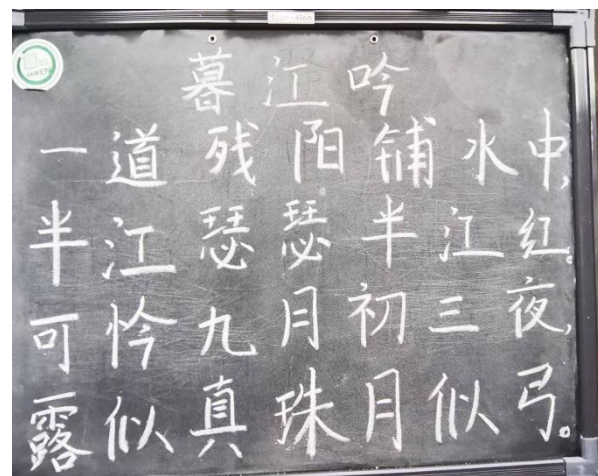 暮江吟
一道残阳铺水中，
半江瑟瑟半江红。
可怜九月初三夜，
露似真珠月似弓。